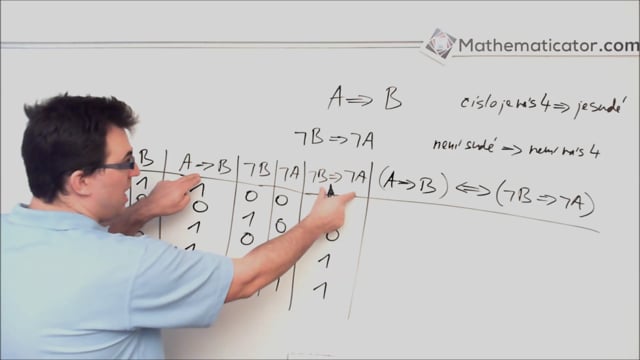 Mathematicator.com
A ⇒ B
číslo je nás 4 ⇒ je sudé
¬B ⇒ ¬A
není sudé ⇒ není nás 4
B | A ⇒ B | ¬B | ¬A | ¬B ⇒ ¬A | (A ⇒ B) ⇔ (¬B ⇒ ¬A)
1 1 0 0
0 0 1 0 0
1 0 0
1
1 1